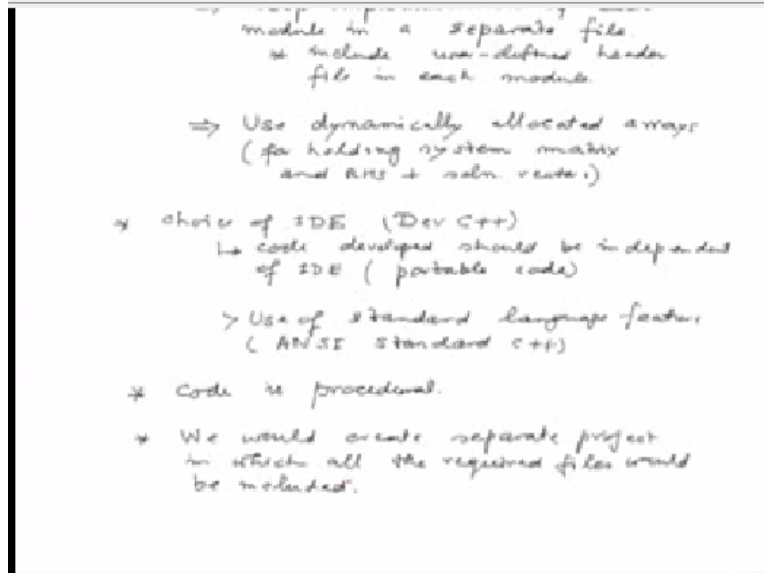 module in a separate file.
* include user-defined header
file in each module.
⇒ Use dynamically allocated arrays
(for holding system matrix
and RHS + soln. vector)
* Choice of IDE (Dev C++)
↳ code developed should be independent
of IDE (portable code)
> Use of standard language features
(ANSI Standard C++)
* Code is procedural.
* We would create separate project
in which all the required files would
be included.